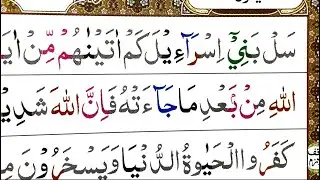 سَلْ بَنِيْۤ اِسْرَآءِيْلَ كَمْ اٰتَيْنٰهُمْ مِّنْ
اللّٰهِ مِنْۢ بَعْدِ مَا جَآءَتْهُ فَاِنَّ اللّٰهَ
كَفَرُوا الْحَيٰوةُ الدُّنْيَا وَيَسْخَرُوْنَ